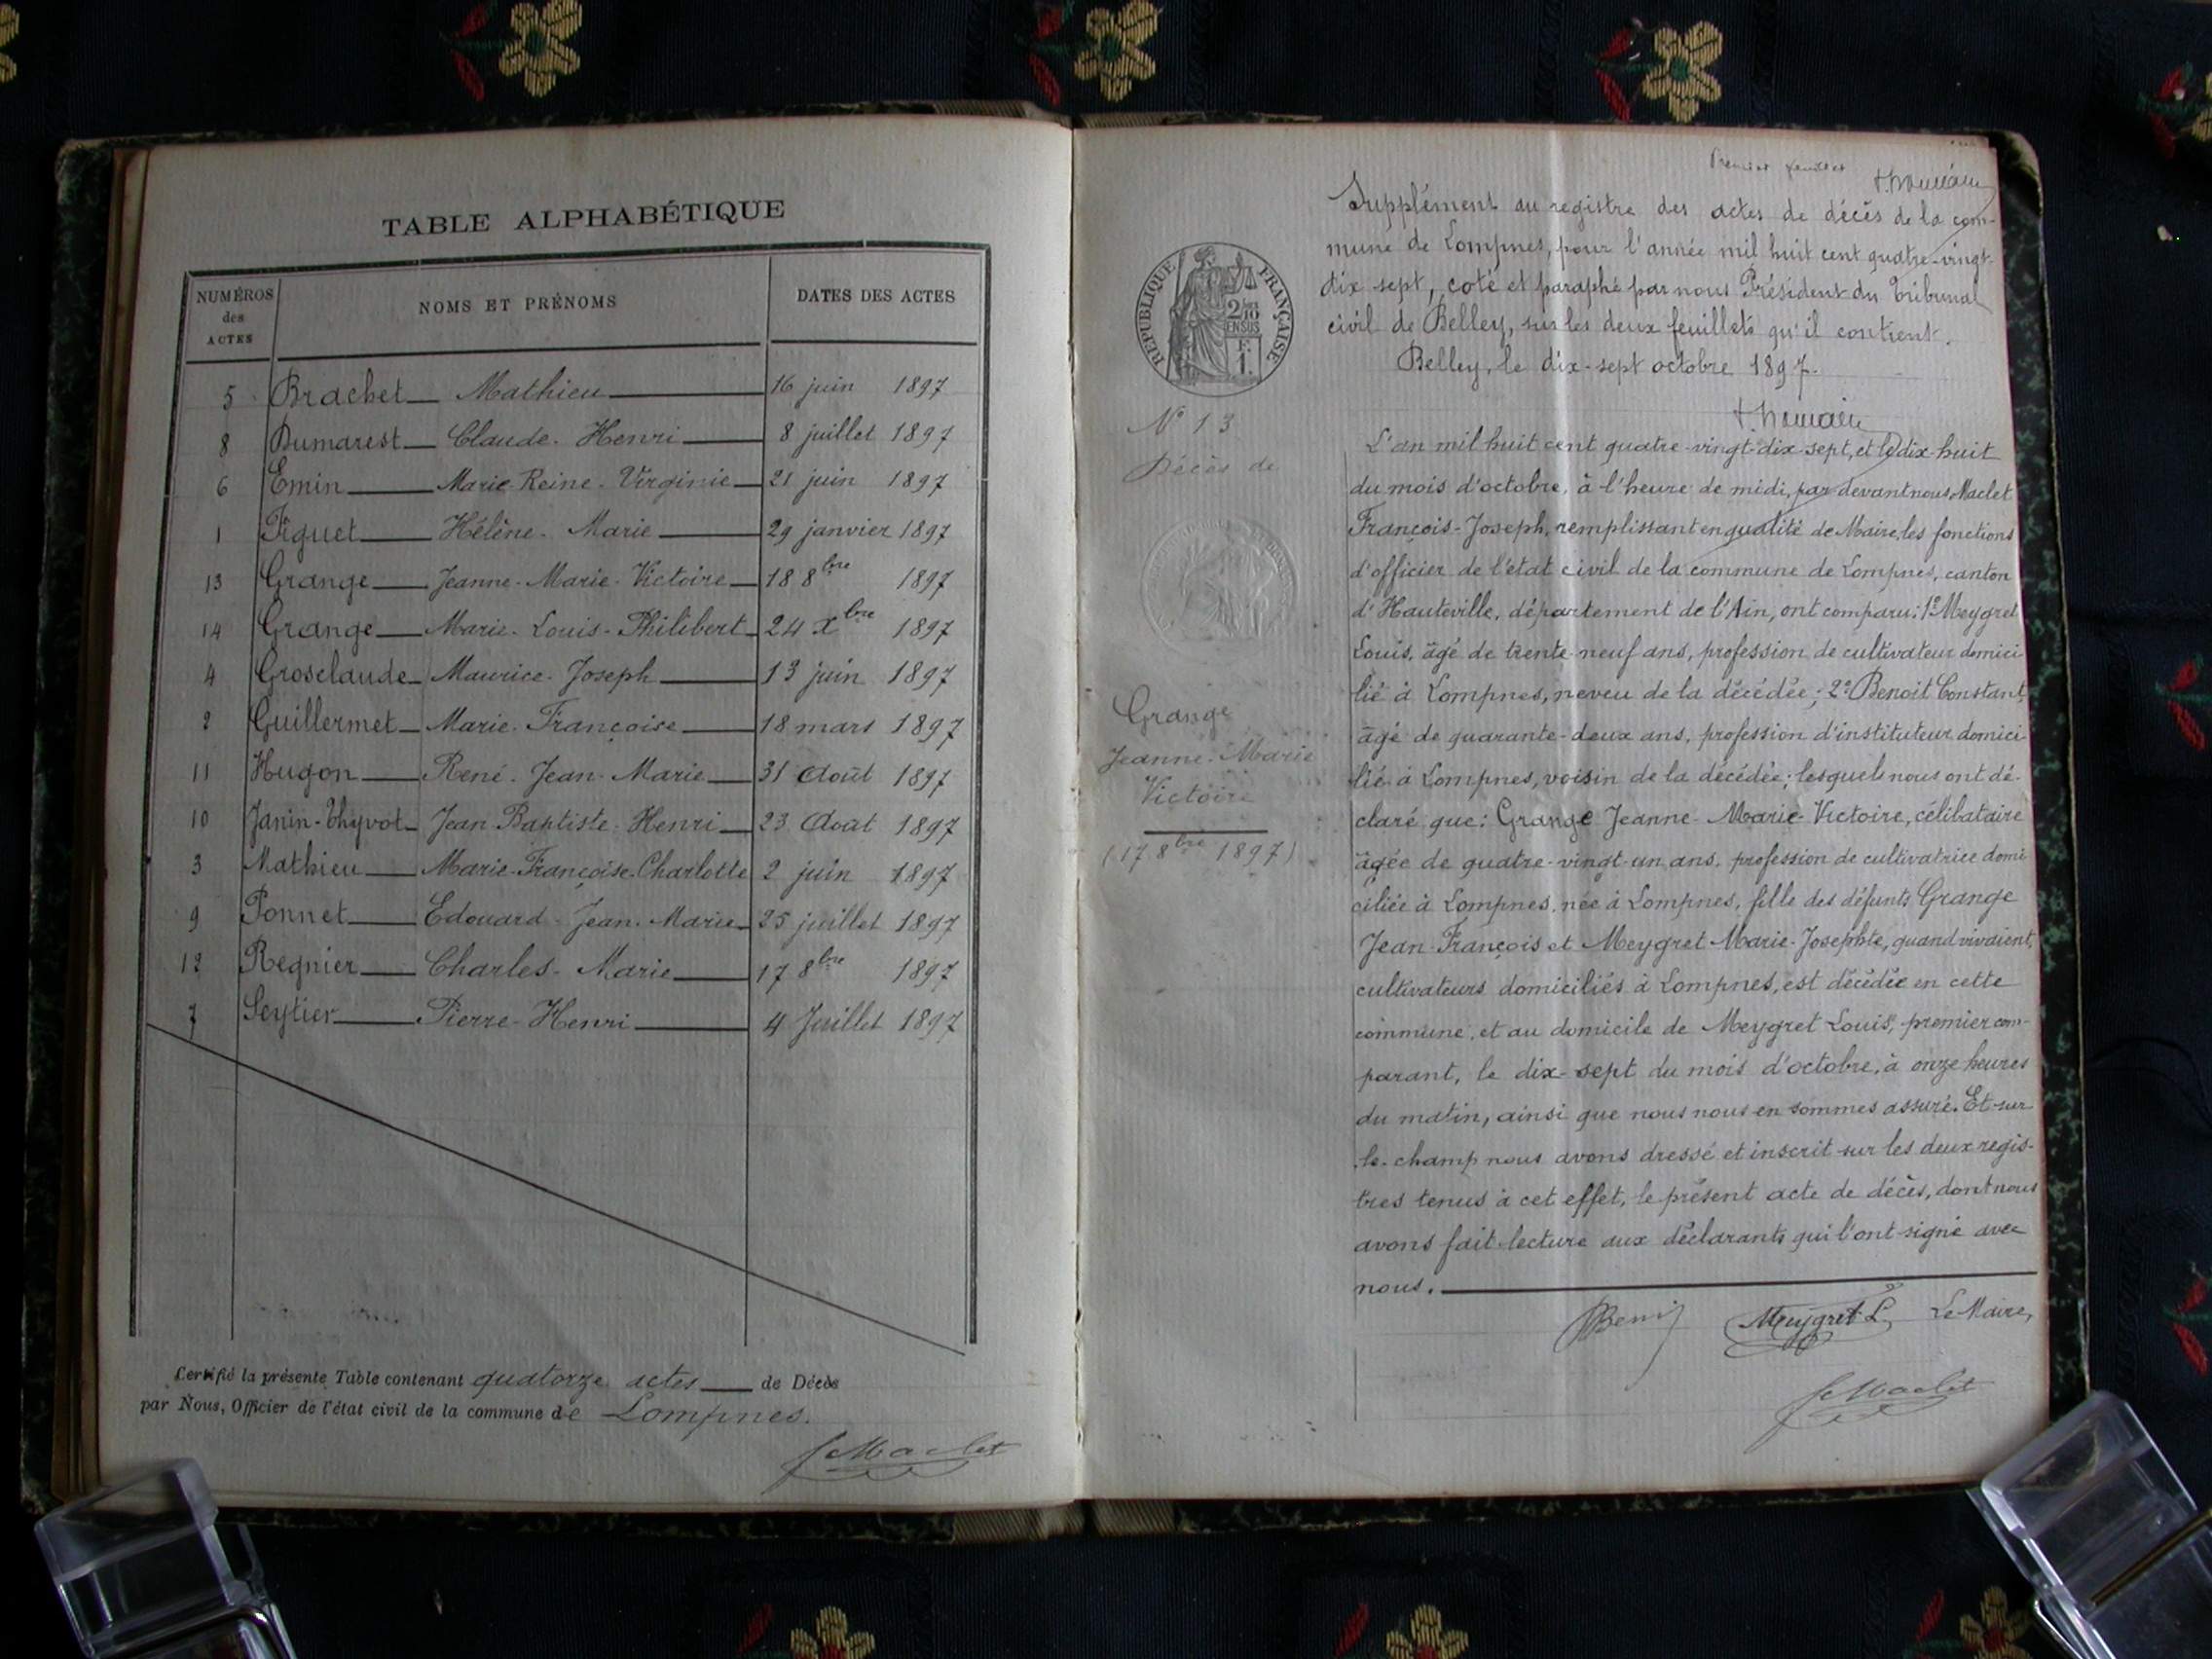 TABLE ALPHABÉTIQUE
NUMÉROS des ACTES NOMS ET PRÉNOMS DATES DES ACTES
5 Brachet Mathieu 16 juin 1897
8 Dumarest Claude-Henri 8 juillet 1897
6 Emin Marie-Reine-Virginie 21 juin 1897
1 Figuet Hélène-Marie 29 janvier 1897
13 Grange Jeanne-Marie-Victoire 18 8bre 1897
14 Grange Marie-Louis-Philibert 24 Xbre 1897
4 Grosclaude Maurice-Joseph 13 juin 1897
2 Guillermet Marie-Françoise 18 mars 1897
11 Hugon René-Jean-Marie 31 Août 1897
10 Janin-Thyvot Jean-Baptiste-Henri 23 Août 1897
3 Mathieu Marie-Françoise-Charlotte 2 juin 1897
9 Ponnet Edouard-Jean-Marie 25 juillet 1897
12 Regnier Charles-Marie 17 8bre 1897
7 Seytier Pierre-Henri 4 Juillet 1897
Certifié la présente Table contenant quatorze actes de Décès
par Nous, Officier de l'état civil de la commune de Lompnes.
Maclet
Premier feuillet
Supplément au registre des actes de décès de la com-
mune de Lompnes, pour l'année mil huit cent quatre-vingt-
dix sept, coté et paraphé par nous Président du Tribunal
civil de Belley, sur les deux feuillets qu'il contient.
Belley, le dix-sept octobre 1897.
RÉPUBLIQUE FRANÇAISE
2/10 EN SUS
F. 1.
N° 13
Décès de
Grange
Jeanne-Marie
Victoire
(17 8bre 1897)
L'an mil huit cent quatre-vingt-dix-sept, et le dix-huit
du mois d'octobre, à l'heure de midi, par devant nous Maclet
François-Joseph, remplissant en qualité de Maire, les fonctions
d'officier de l'état civil de la commune de Lompnes, canton
d'Hauteville, département de l'Ain, ont comparu: 1° Meygret
Louis, âgé de trente-neuf ans, profession de cultivateur domici-
lié à Lompnes, neveu de la décédée; 2° Benoit Constant,
âgé de quarante-deux ans, profession d'instituteur domici-
lié à Lompnes, voisin de la décédée; lesquels nous ont dé-
claré que: Grange Jeanne-Marie-Victoire, célibataire
âgée de quatre-vingt-un ans, profession de cultivatrice domi-
ciliée à Lompnes, née à Lompnes, fille des défunts Grange
Jean-François et Meygret Marie-Josephte, quand vivaient,
cultivateurs domiciliés à Lompnes, est décédée en cette
commune, et au domicile de Meygret Louis, premier com-
parant, le dix-sept du mois d'octobre, à onze heures
du matin, ainsi que nous nous en sommes assuré. Et sur-
le-champ nous avons dressé et inscrit sur les deux regis-
tres tenus à cet effet, le présent acte de décès, dont nous
avons fait lecture aux déclarants qui l'ont signé avec
nous.
Meygret L. Le Maire,
Maclet